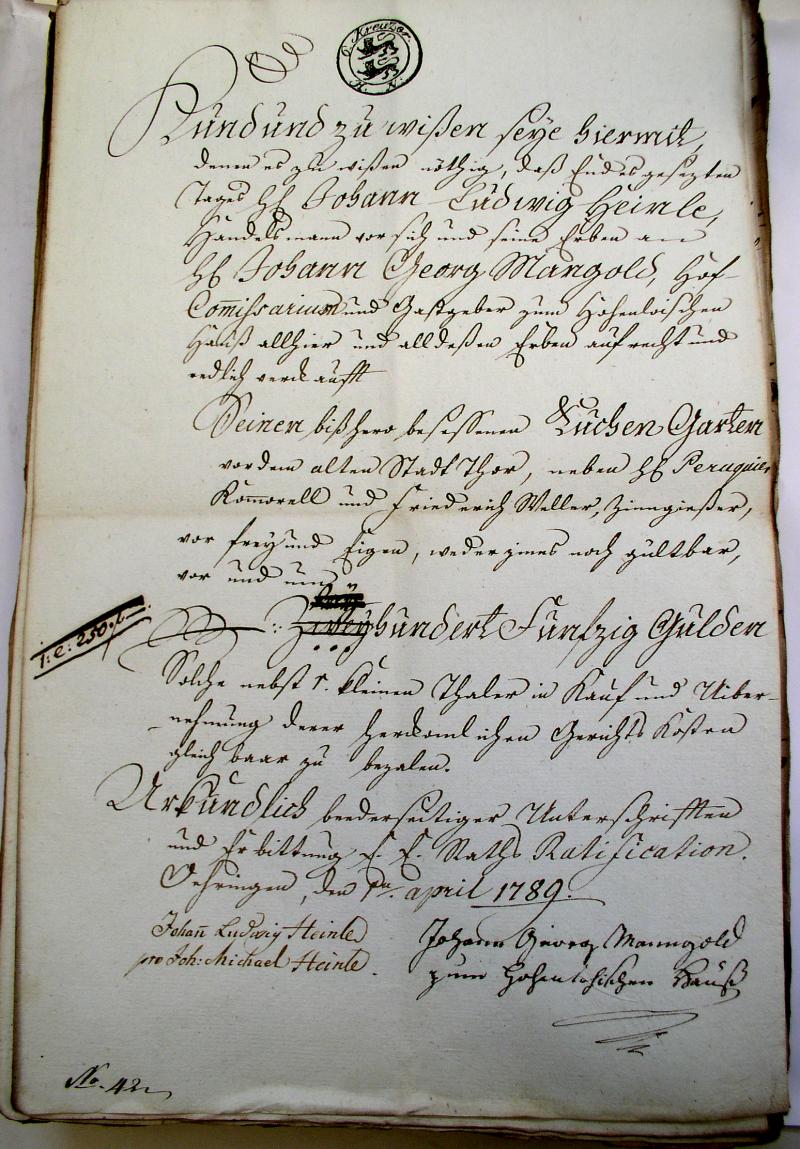 6. Kreuzer.
H. N.
Kund und zu wißen seye hiermit,
denen es zu wißen nöthig, daß Endesgesezten
Tages H Johann Ludwig Heinle,
Handelsmann vor sich und seine Erben an
H Johann Georg Mangold, Hof-
Commissarium und Gastgeber zum Hohenloischen
Hauß allhier und alldeßen Erben aufrecht und
redlich verkaufft
Seinen bißhero beseßenen Kuchen Garten
vor dem alten Stadt Thor, neben H Peruquier
Kommerell und Friederich Weller, Zinngießer,
vor frey und Eigen, weder zins noch gültbar,
vor und um
i: e: 250 f :: Zweyhundert Funfzig Gulden
Solche nebst 1. kleinen Thaler in Kauf und Uiber-
nehmung derer herkomlichen Gerichts Kosten
gleich baar zu bezalen.
Urkundlich beederseitiger Unterschrifften
und Erbittung E. E. Raths Ratification.
Oehringen, den april 1789.
Johañ Ludwig Heinle Johann Georg Manngold
pro Joh: Michael Heinle. zum Hohenlohischen Hauß
No. 42.